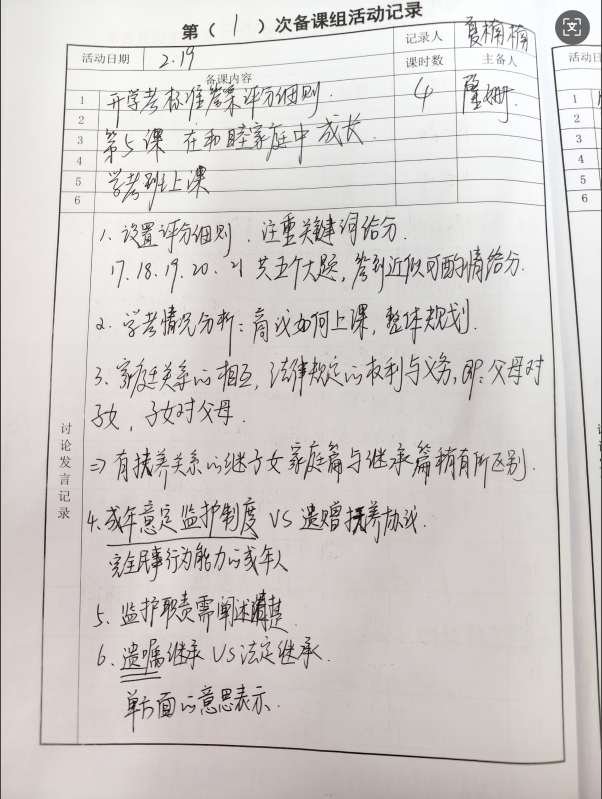 第（ 1 ）次备课组活动记录
活动日期 2.19 记录人 夏楠楠
课时数 主备人
备课内容
1 开学考标准答案评分细则. 4
2
3 第5课 在和睦家庭中成长.
4
5 学考班上课
6
1. 设置评分细则. 注重关键词给分.
17.18.19.20.21 共五个大题, 答到近似可酌情给分.
2. 学考情况分析: 商议如何上课, 整体规划.
3. 家庭关系的相互, 法律规定的权利与义务, 即: 父母对
子女, 子女对父母.
⇒ 有扶养关系的继子女家庭篇与继承篇稍有所区别.
4. 成年意定监护制度 VS 遗赠扶养协议.
完全民事行为能力的成年人
5. 监护职责需阐述清楚.
6. 遗嘱继承 VS 法定继承.
单方面的意思表示.
讨论发言记录
活动日
1
2
3
4
5
6